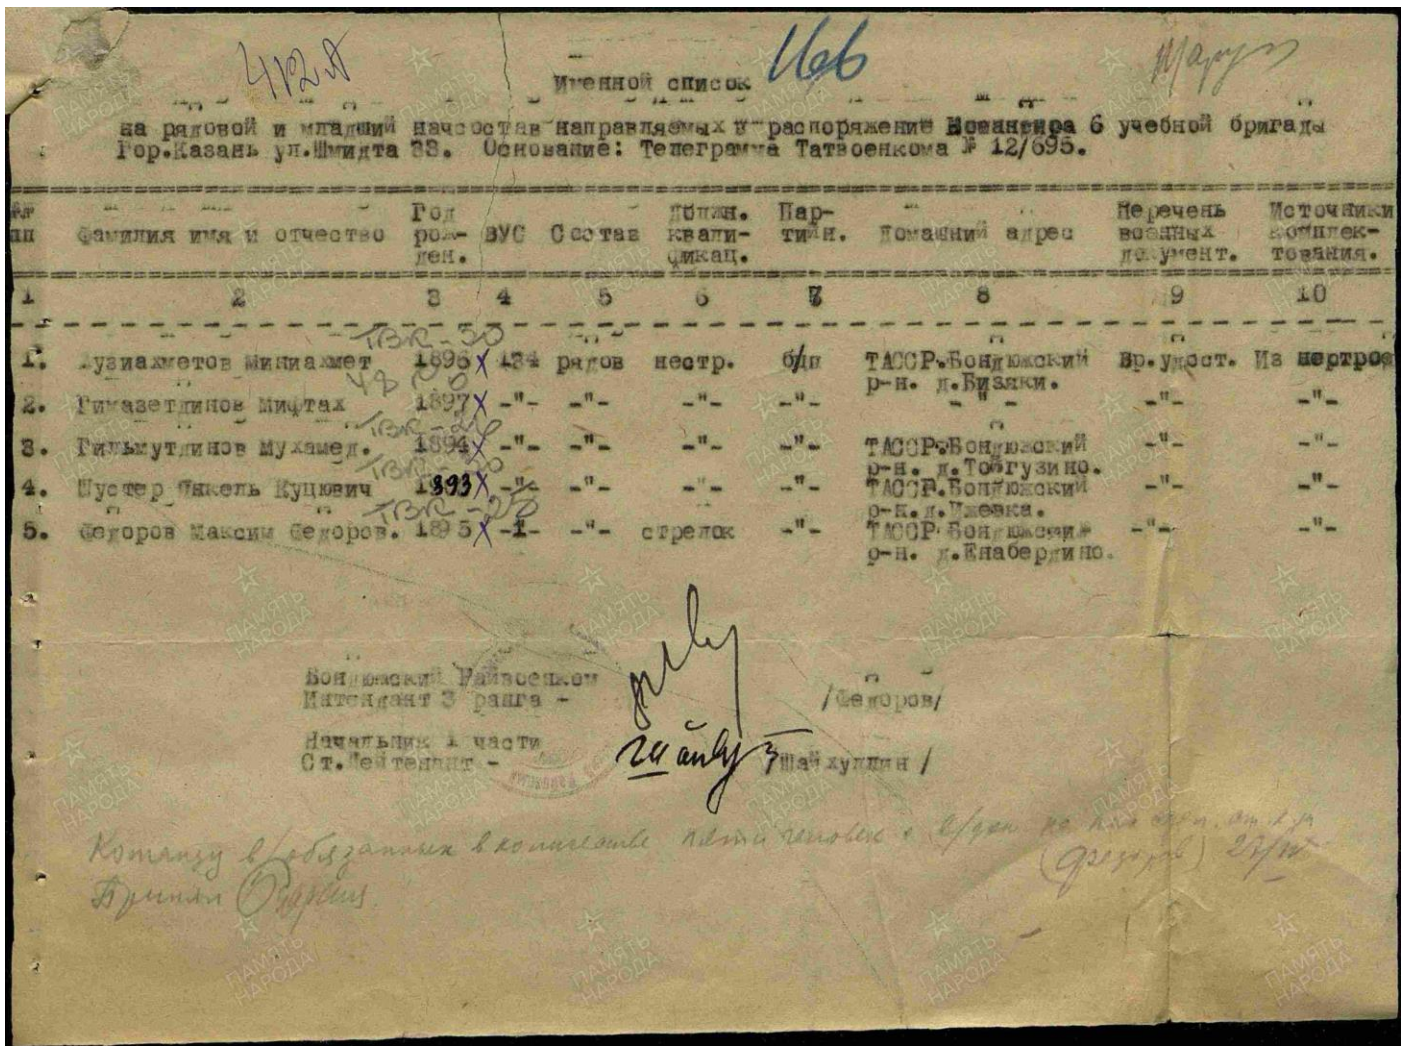 Именной список
на рядовой и младший начсостав направляемых в распоряжение Команкира 6 учебной бригады
Гор.Казань ул.Шмидта 33. Основание: Телеграмма Татвоенкома № 12/695.
№№ пп Фамилия имя и отчество Год рож-ден. ВУС Состав Должн. квали-фикац. Пар-тийн. Домашний адрес Перечень военных документ. Источники комплек-тования.
1 2 3 4 5 6 7 8 9 10
ТВК-30
1. Лузиахметов Миниахмет 1896 х 134 рядов нестр. б/п ТАССР.Бондюжский Вр.удост. Из нестрое
р-н. д.Бизяки.
2. Гимазетдинов Мифтах 1897 х -"- -"- -"- -"- -"- -"- -"-
3. Гильмутдинов Мухамед. 1894 х -"- -"- -"- -"- ТАССР.Бондюжский -"- -"-
р-н. д.Тойгузино.
4. Шустер Янкель Куцювич 1893 х -"- -"- -"- -"- ТАССР.Бондюжский -"- -"-
р-н.д.Ижевка.
5. Федоров Максим Федоров. 1895 х -1- -"- стрелок -"- ТАССР.Бондюжский -"- -"-
р-н. д.Енабердино.
Бондюжский Райвоенком
Интендант 3 ранга - /Федоров/
Начальник 1 части
Ст.Лейтенант - /Шайхуллин/
Команду в/обязанных в количестве пяти человек с
(Федоров) 27/IV
Принял
ПАМЯТЬ НАРОДА